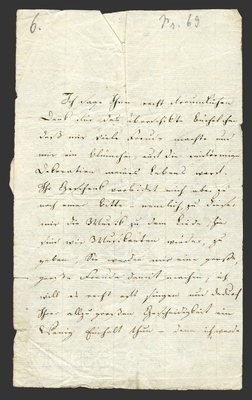 6.
Nr. 69
Ich sage Ihnen recht freundlichen
Dank für das überschickte Büchelchen
daß mir viele Freude machte und
mir ein Blümchen auf die einförmige
Dekoration meines Lebens warf.
Ihr Geschenk verleidet mich aber zu
noch einer Bitte nemlich zu dieser
mir die Musik zu dem Liede: Hin
sind wir Musikanten wieder, zu
geben. Sie werden mir eine große
große Freude damit machen, ich
will es recht oft singen und dadurch
Ihrer allzu großen Bescheidenheit ein
Wenig Einhalt thun – denn ich werde